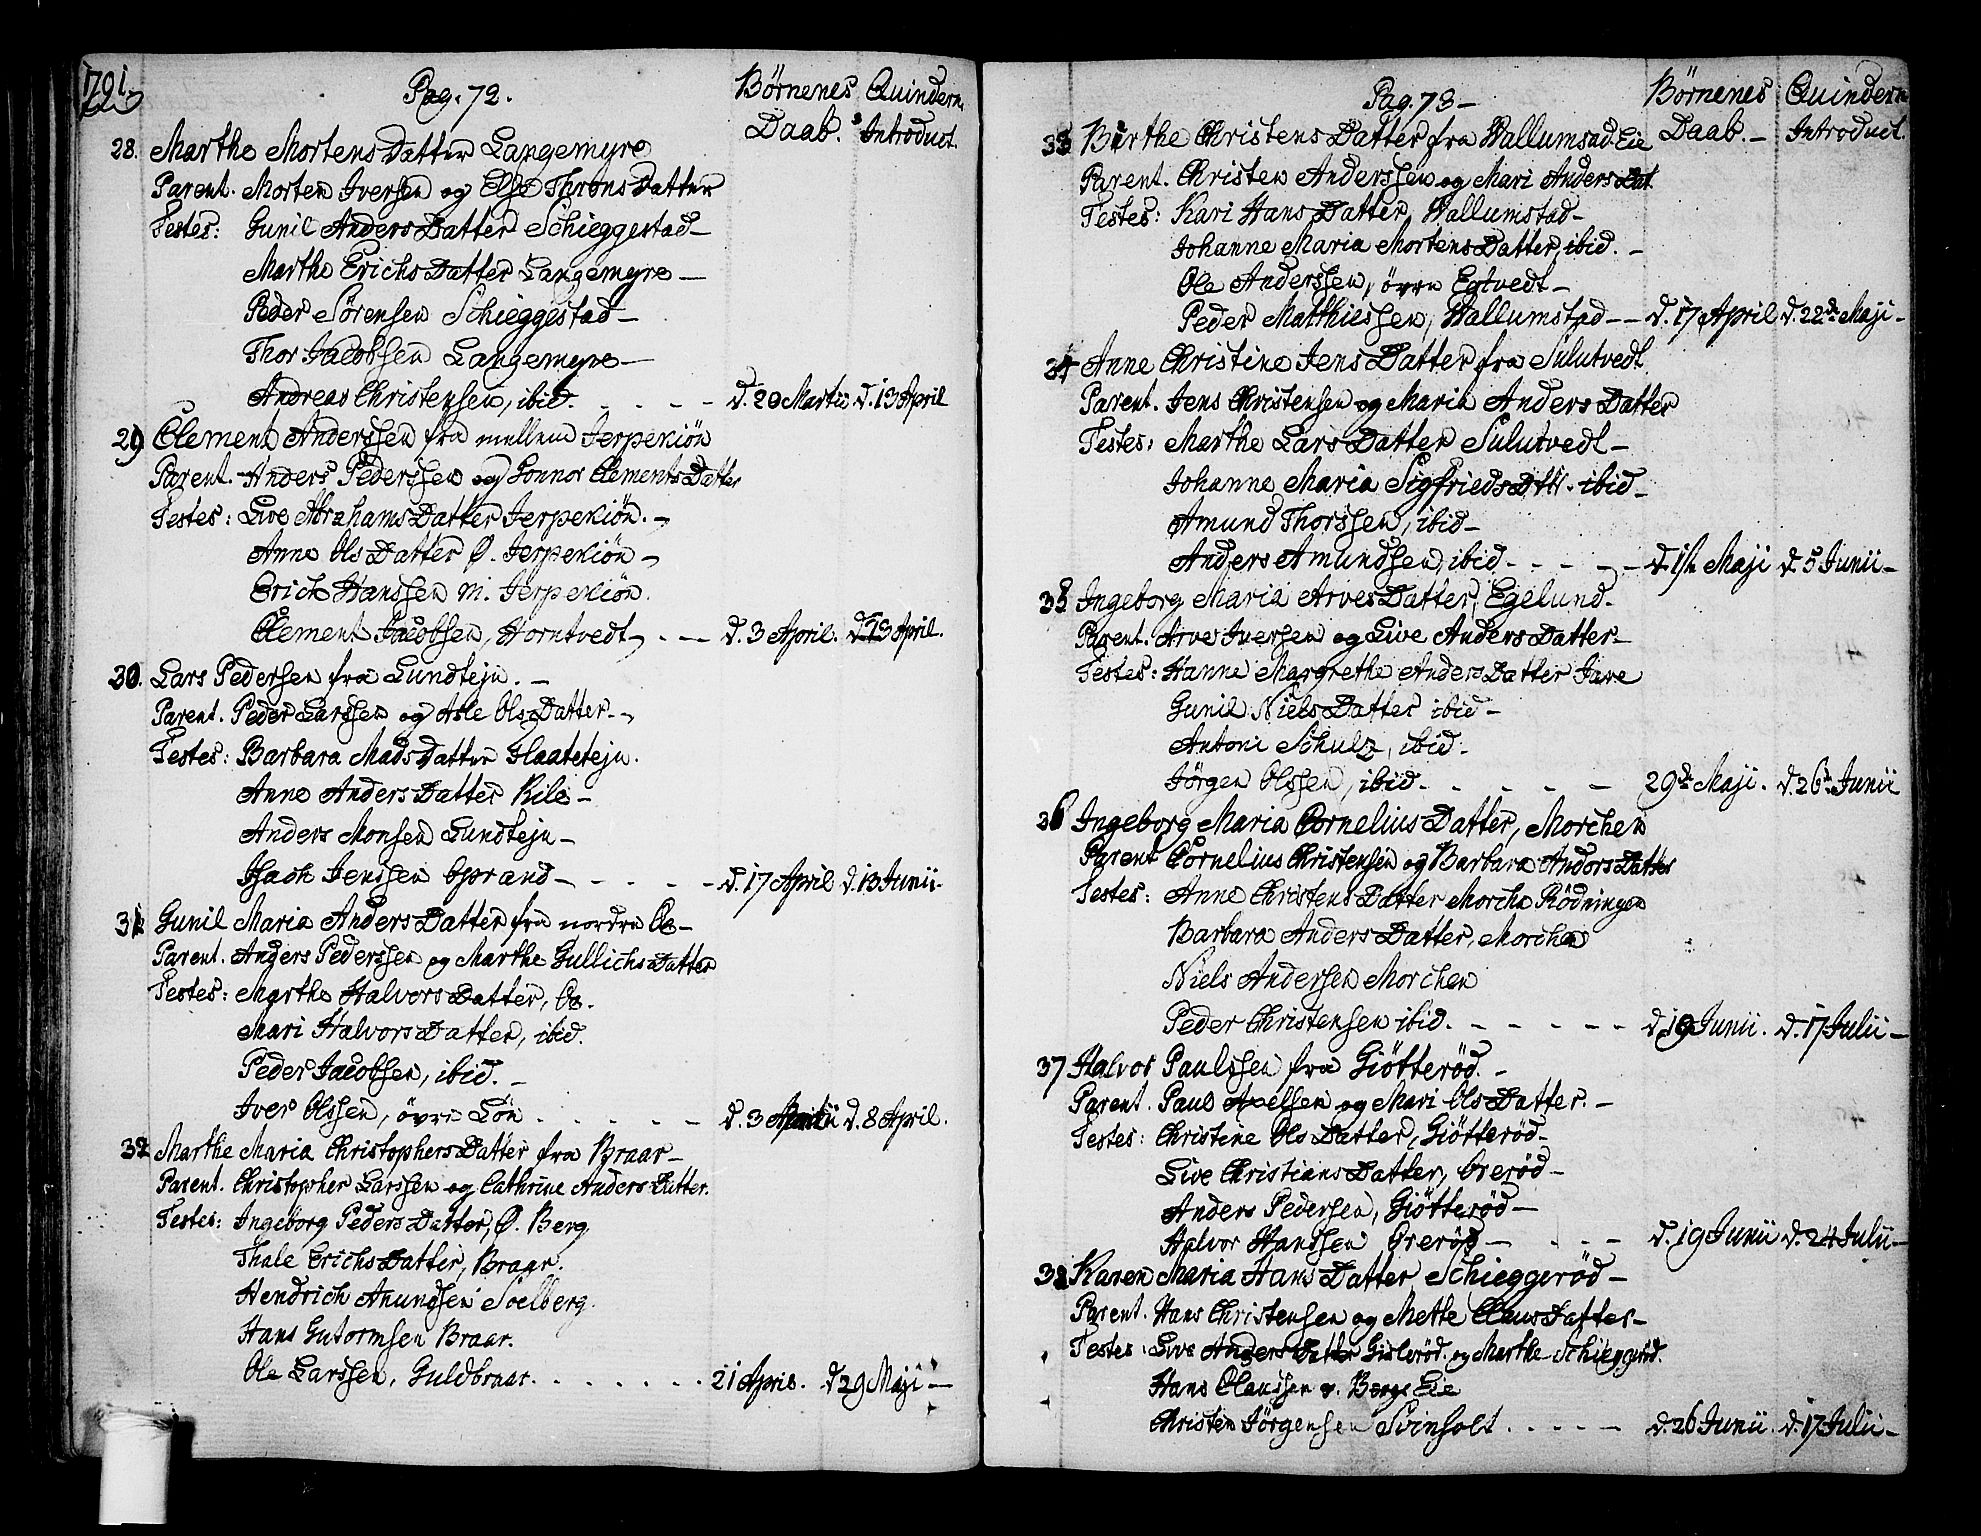 1791.
Pag. 72.
Börnenes Daab. Quindern. Introduct.
28. Marthe Mortens Datter Langemyre
Parent. Morten Iversen og Else Throns Datter
Testes: Gunil Anders Datter Schieggestad-
Marthe Erichs Datter Langemyre-
Peder Sörensen Schieggestad-
Thor Jacobsen Langemyre-
Andreas Christensen, ibid. - - - - d. 20 Martii d. 13 April
29 Clement Anderssen fra mellem Jerpekiön
Parent. Anders Pederssen og Gonnor Clements Datter
Testes: Live Abrahams Datter Jerpekiön.-
Anne Ols Datter Ø. Jerpekiön-
Erich Hanssen m. Jerpekiön.
Clement Jacobsen, Horntvedt - - d. 3 April. d. 13 April.
30. Lars Pedersen fra Lundteju. -
Parent. Peder Larssen og Asle Ols Datter.-
Testes: Barbara Mads Datter Flaateteju.
Anne Anders Datter Rile-
Anders Monsen Lundteju-
Isach Jenssen Osrand- - - - - d. 17 April d. 13 Junii-
31 Gunil Maria Anders Datter fra nordre Oe-
Parent. Anders Pederssen og Marthe Gullichs Datter
Testes: Marthe Halvors Datter, Oe.
Mari Halvors Datter, ibid.
Peder Jacobsen, ibid. -
Iver Olssen, övre Lön - - - - - d. 3 April d. 8 April.
32 Marthe Maria Christophers Datter fra Braar-
Parent. Christopher Larssen og Cathrine Anders Datter.
Testes: Ingeborg Peders Datter, Ø. Berg
Thale Erichs Datter, Braar.
Hendrich Anundsen Soelberg.
Hans Gutormsen Braar.
Ole Larssen, Guldbraar. - - - - - - 21 April. d. 29 Maji-
Pag. 73-
Börnenes Daab. - Quindern Introduct.
33 Birthe Christens Datter fra Wallumsad. Eie
Parent. Christen Anderssen og Mari Anders Dat.
Testes: Kari Hans Datter, Wallumstad-
Johanne Maria Mortens Datter, ibid. -
Ole Anderssen, övre Egtvedt-
Peder Matthiessen, Wallumstad-- d. 17 April d. 22de Maji-
34 Anne Christine Jens Datter fra Sulutvedt
Parent. Jens Christensen og Maria Anders Datter
Testes: Marthe Lars Datter Sulutvedt-
Johanne Maria Sigfrieds Dttr. ibid-
Amund Thorssen, ibid-
Anders Amundsen, ibid. - - - - d. 1ste Maji d. 5 Junii-
35 Ingeborg Maria Arves Datter, Egelund.
Parent: Arve Iversen og Live Anders Datter-
Testes: Hanne Margrethe Anders Datter Jare
Gunil Niels Datter ibid-
Antoni Schulz, ibid-
Jörgen Olssen, ibid. - - - - - 29de Maji. d. 26de Junii
36 Ingeborg Maria Cornelius Datter, Morchen
Parent Cornelius Christensen og Barbara Anders Datter
Testes: Anne Christens Datter Morche Rödningen
Barbara Anders Datter, Morchen
Niels Andersen Morchen
Peder Christensen ibid. - - - - - d 19 Junii. d. 17 Julii-
37 Halvor Paulssen fra Giötteröd. -
Parent. Paul Axelsen og Mari Ols Datter. -
Testes: Christine Ols Datter, Giötteröd-
Live Christians Datter, Greröd-
Anders Pedersen, Giötteröd-
Halvor Hanssen Greröd- - - - d. 19 Junii d. 24 Julii-
38 Karen Maria Hans Datter Schieggeröd-
Parent. Hans Christensen og Mette Claus Datter-
Testes: Live Anders Datter Gisleröd. og Marthe Schieggeröd.
Hans Claussen v. Bergs Eie
Christen Jörgensen Svinholt. - - - - d. 26 Junii. d. 17 Julii-